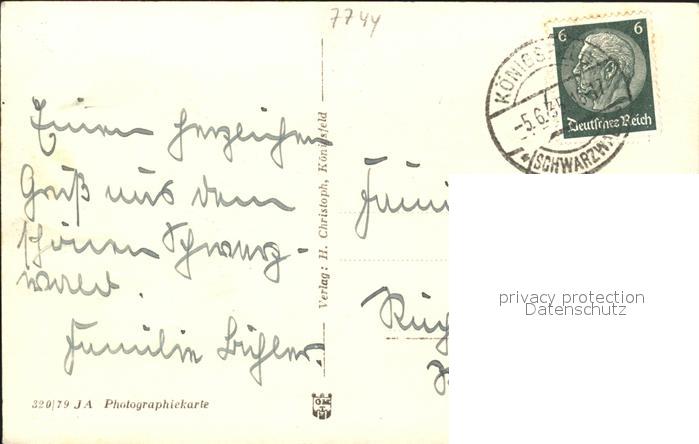 7744
6 6
Deutsches Reich
KÖNIGSFELD
-5.6.
(SCHWARZWA
Einen herzlichen
Gruß aus dem
schönen Schwarz-
wald.
Familie Bühler.
Verlag: H. Christoph, Königsfeld
Fami
privacy protection
Datenschutz
320/79 JA Photographiekarte